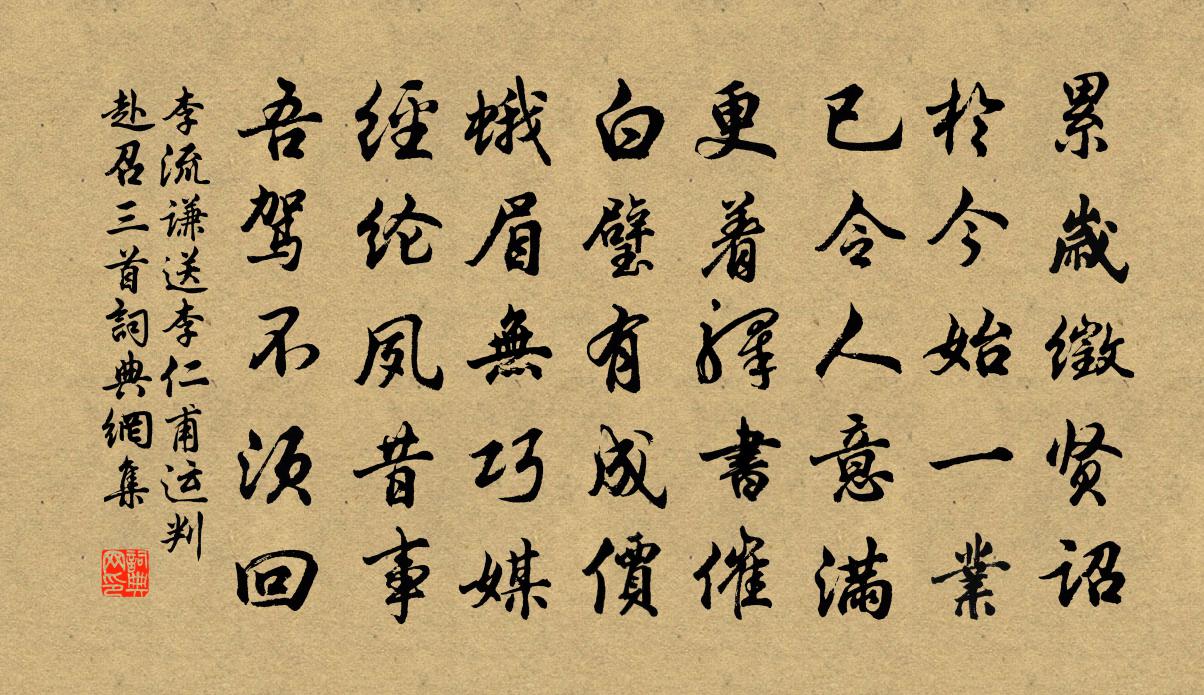 累歲徵贤詔
於今始一業
已令人意滿
更着驛書催
白璧有成價
蛾眉無巧媒
經纶夙昔事
吾驾不须回
李流谦送李仁甫运判
赴召三首詞典網集
詞典网印